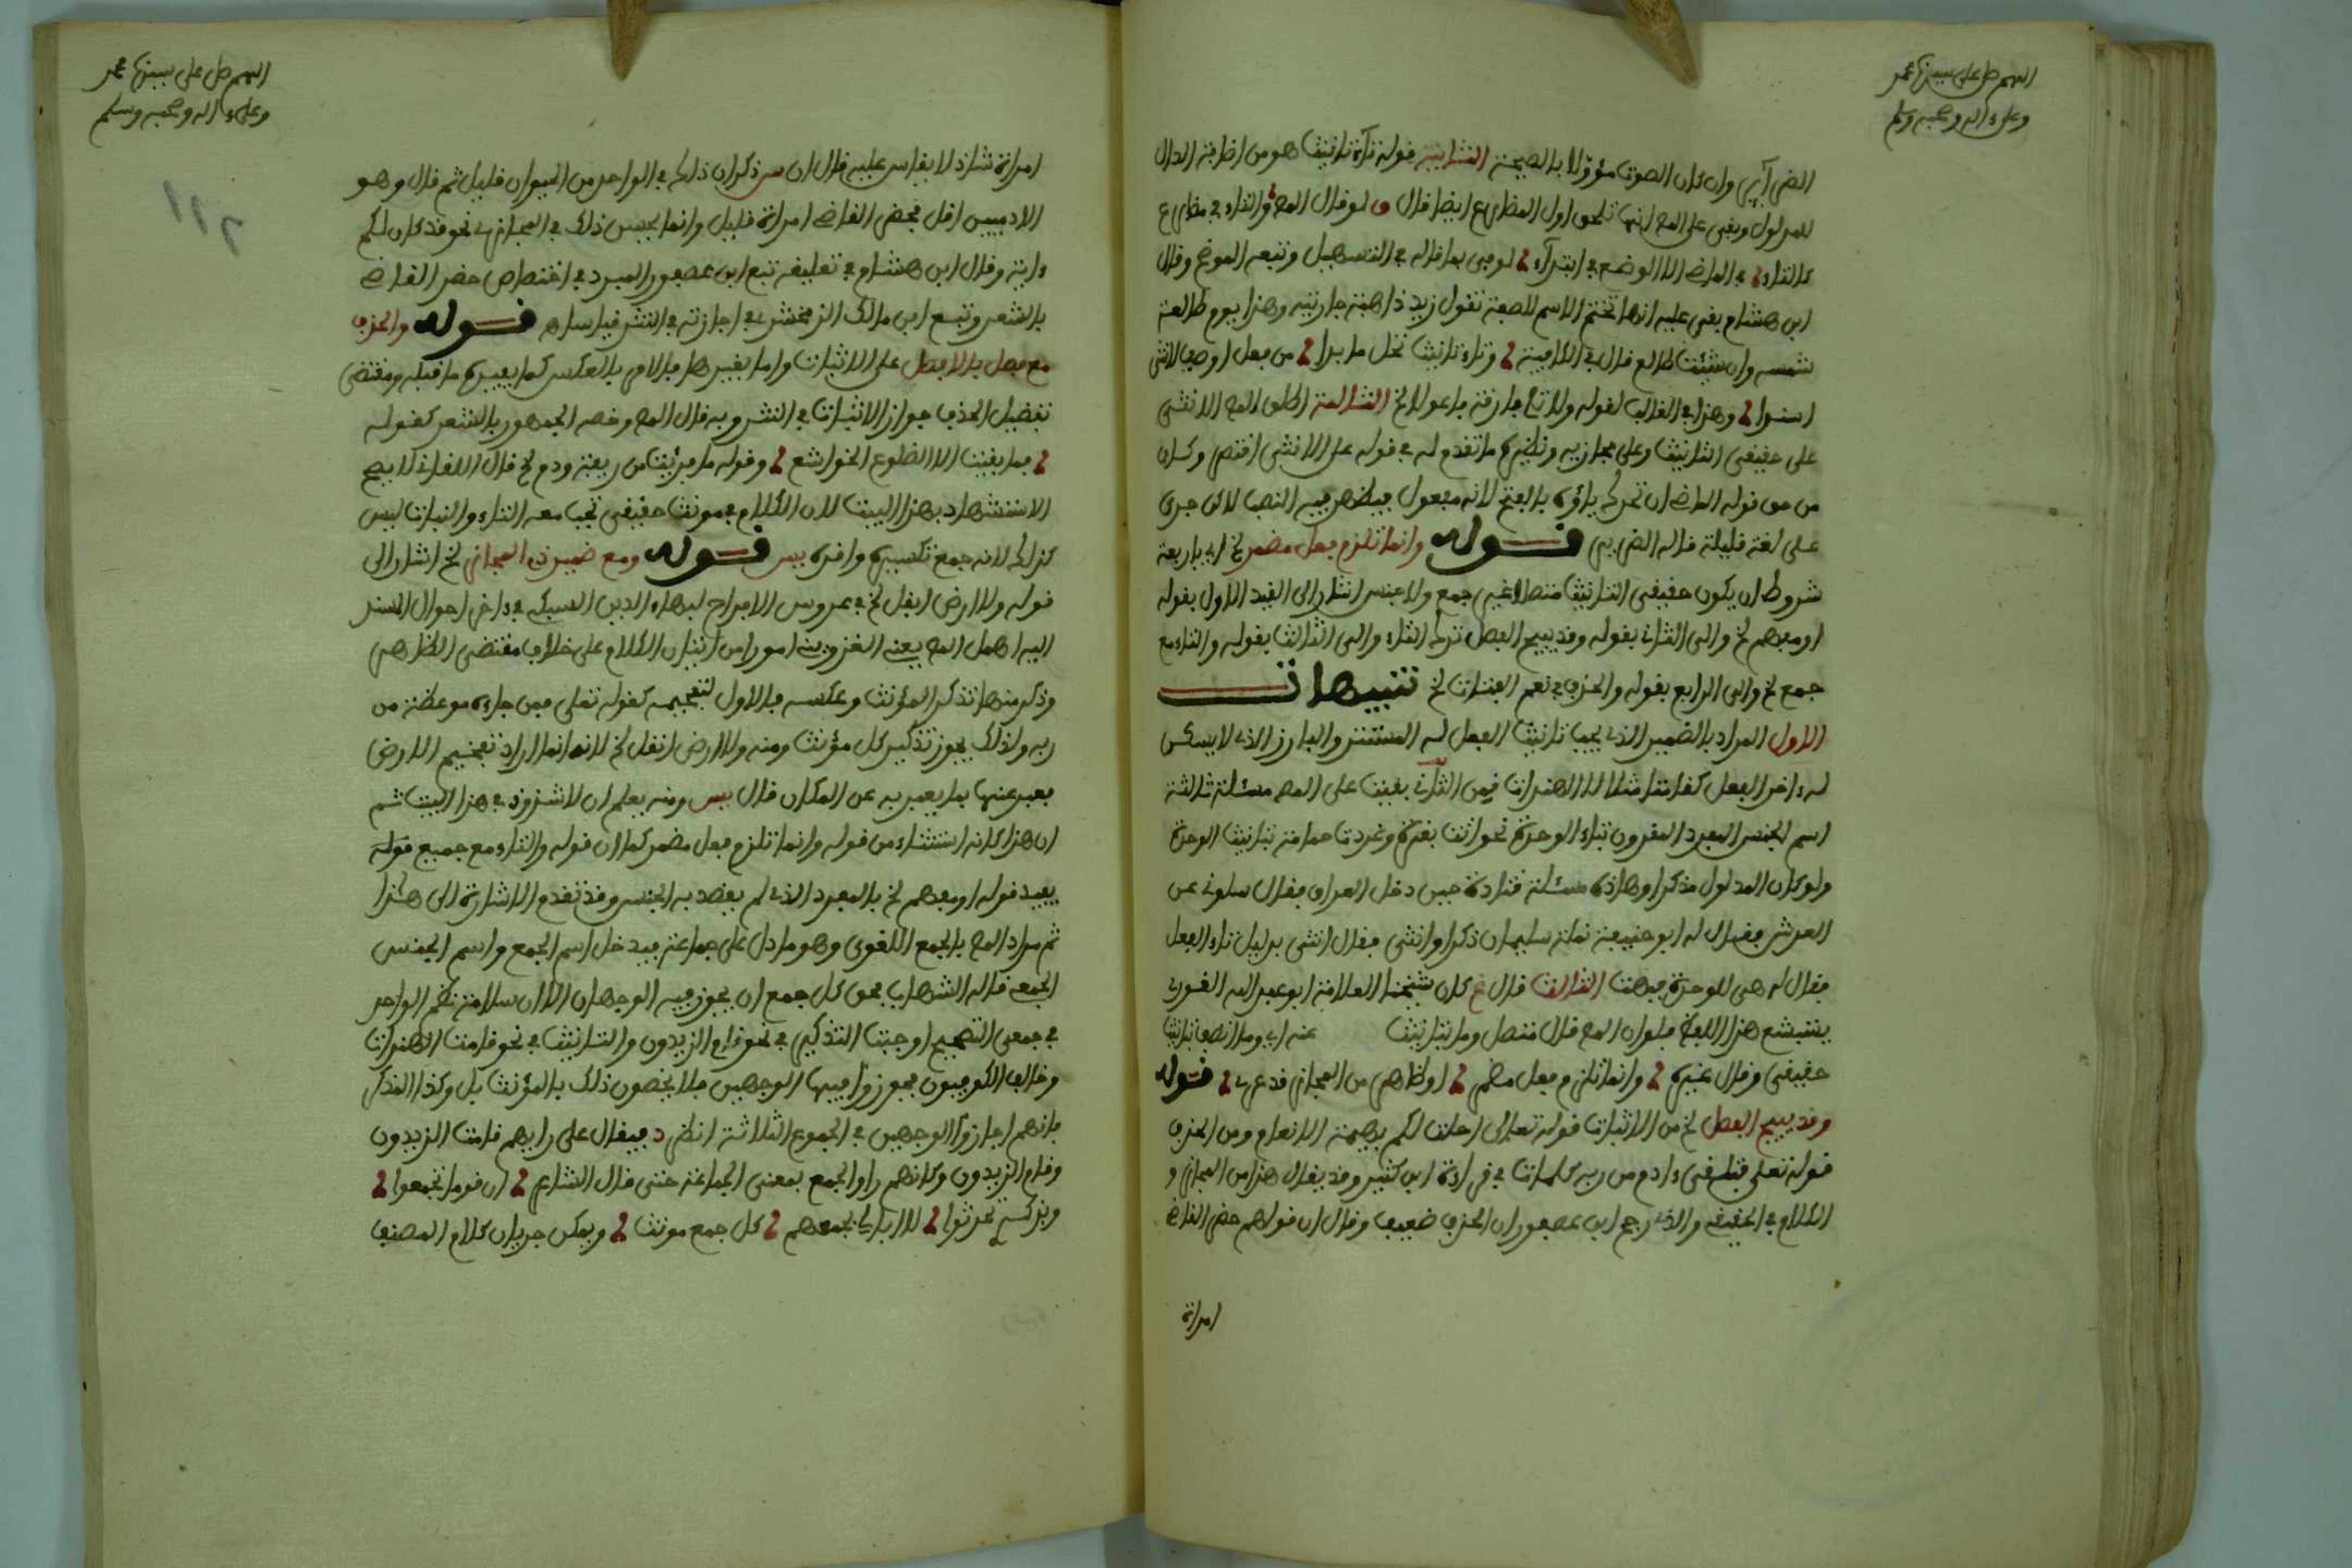 اللهم صل على سيدنا محمد
وعلى ءاله وصحبه وسلم
وان كان الصوت مؤولا بالصيحة الثانية قوله تاء تانيث هو من اضافة الدال
للمدلول وبقي على المص انها تلحق اول المضارع ايضا قال لو قال المص والتاء في مضارع
كالتاء في الماضي الا الوضع في ابتداء لوفى بما قاله في التسهيل وتبعه الموضح وقال
ابن هشام بقي عليه انها تختم الاسم للصفة تقول زيد ذاهبة جاريته وهذا يوم طالعة
شمسه وان شئت طالع قال في الكافية وتاء تانيث تحل ما بدا من فعل او وصف لانثى
اسندا وهذا في الغالب لقوله ولا تلي فارقة فاعولا لخ الثالثة اطلق المص الانثى
على حقيقي التانيث وعلى مجازيه ونظيره ما تقدم له في قوله على الانثى اقتصر وكان
من حق قوله الماضي ان تحرك ياؤه بالفتح لانه مفعول فيظهر فيه النصب لاكن جرى
على لغة قليلة قاله قوله وانما تلزم فعل مضمر لخ اي باربعة
شروط ان يكون حقيقي التانيث متصلا غير جمع ولا جنس اشار الى القيد الاول بقوله
او مفهم لخ والى الثاني بقوله وقد يبيح الفصل ترك التاء والى الثالث بقوله والتاء مع
جمع لخ والى الرابع بقوله والحذف في نعم الفتات لخ تنبيهات
الاول المراد بالضمير الذي يجب تانيث الفعل له المستتر والبارز الذي لا يسكن
له ءاخر الفعل كقامتا مثلا لا الهندات قمن الثاني بقيت على المص مسئلة ثالثة
اسم الجنس المفرد المقرون بتاء الوحدة نحو اثت بقرة وغردت حمامة بتانيث الوحدة
ولو كان المدلول مذكرا وهاذه مسئلة قتادة حين دخل العراق فقال سلوني عن
العرش فقال له ابو حنيفة نملة سليمان ذكر او انثى فقال انثى بدليل تاء الفعل
فقال له هي للوحدة فبهت الثالث قال كان شيخنا العلامة ابو عبد الله القوري
يستبشع هذا اللفظ فلو ان المص قال متصل وما بتانيث عنه اي وما اتصف بتانيث
حقيقي وقال غيره وانما تلزم فعل مضمر او ظاهر من المجاز قد عري قوله
وقد يبيح الفصل لخ من الاثبات قوله تعالى احلت لكم بهيمة الانعام ومن الحذف
قوله تعلى فتلقى ءادم من ربه كلمات في قراءة ابن كثير وقد يقال هذا من المجاز و
الكلام في الحقيقي والذي رجح ابن عصفور ان الحذف ضعيف وقال ان قولهم حضر القاضي
امراة
اللهم صل على سيدنا محمد
وعلى ءاله وصحبه وسلم
٢١١
امراة شاذ لا يقاس عليه قال ان س ذكر ان ذلك في الواحد من الحيوان قليل ثم قال وهو
الادميين اقل فحضر القاضي امراة قليل وانما يحسن ذلك في المجازي نحو قد كان لكم
ءاية وقال ابن هشام في تعليقه تبع ابن عصفور المبرد في اختصاص حضر القاضي
بالشعر وتبع ابن مالك الزمخشري في اجازته في النثر قياسا اه قوله والحذف
مع فصل بالا فضل على الاثبات واما بغيرها فالامر بالعكس كما يفيده ما قبله ومقتضى
تفضيل الحذف جواز الاثبات في النثر وبه قال المص وخصه الجمهور بالشعر كقوله
فما بقيت الا الضلوع الجراشع وقوله ما برئت من ريبة وذم لخ قال اللقاني لا يصح
الاستشهاد بهذا البيت لان الكلام في مونث حقيقي تجب معه التاء والنبات ليس
كذلك لانه جمع تكسير وافره يس قوله ومع ضمير ذي المجاز لخ اشار الى
قوله ولا ارض ابقل لخ في عروس الافراح لبهاء الدين السبكي في ذاخر احوال المسند
اليه اهمل المص يعني القزويني امورا من اتيان الكلام على خلاف مقتضى الظاهر
وذكر منها تذكير المؤنث وعكسه فالاول لتفخيمه كقوله تعلى فمن جاءه موعظة من
ربه ولذلك يجوز تذكير كل مؤنث ومنه ولا ارض ابقل لخ لانه انما اراد تفخيم الارض
فعبر عنها بما يعبر به عن المكان قال يس ومنه يعلم ان لا شذوذ في هذا البيت ثم
ان هذا كانه استثناء من قوله وانما تلزم فعل مضمر كما ان قوله والتاء مع جميع قوله
يفيد قوله او مفهم لخ بالمفرد الذي لم يقصد به الجنس وقد تقدم الاشارة الى هذا
ثم مراد المص بالجمع اللغوي وهو ما دل على جماعة فيدخل اسم الجمع واسم الجنس
الجمعي قاله الشهاب فحق كل جمع ان يجوز فيه الوجهان الا ان سلامة نظم الواحد
في جمعي التصحيح اوجبت التذكير في نحو قام الزيدون والتانيث في نحو قامت الهندات
وخالف الكوفيون فجوزوا فيها الوجهين فلا يخصون ذلك بالمؤنث بل وكذا المذكر
فانهم اجازوا الوجهين في الجموع الثلاثة انظر د فيقال على رايهم قامت الزيدون
وقام الزيدون وكانهم راوا الجمع بمعنى الجماعة حتى قال الشاعر ان قومي تجمعوا
وبقتلي تحدثوا لا ابالي بجمعهم كل جمع مونث ويمكن جريان كلام المصنف